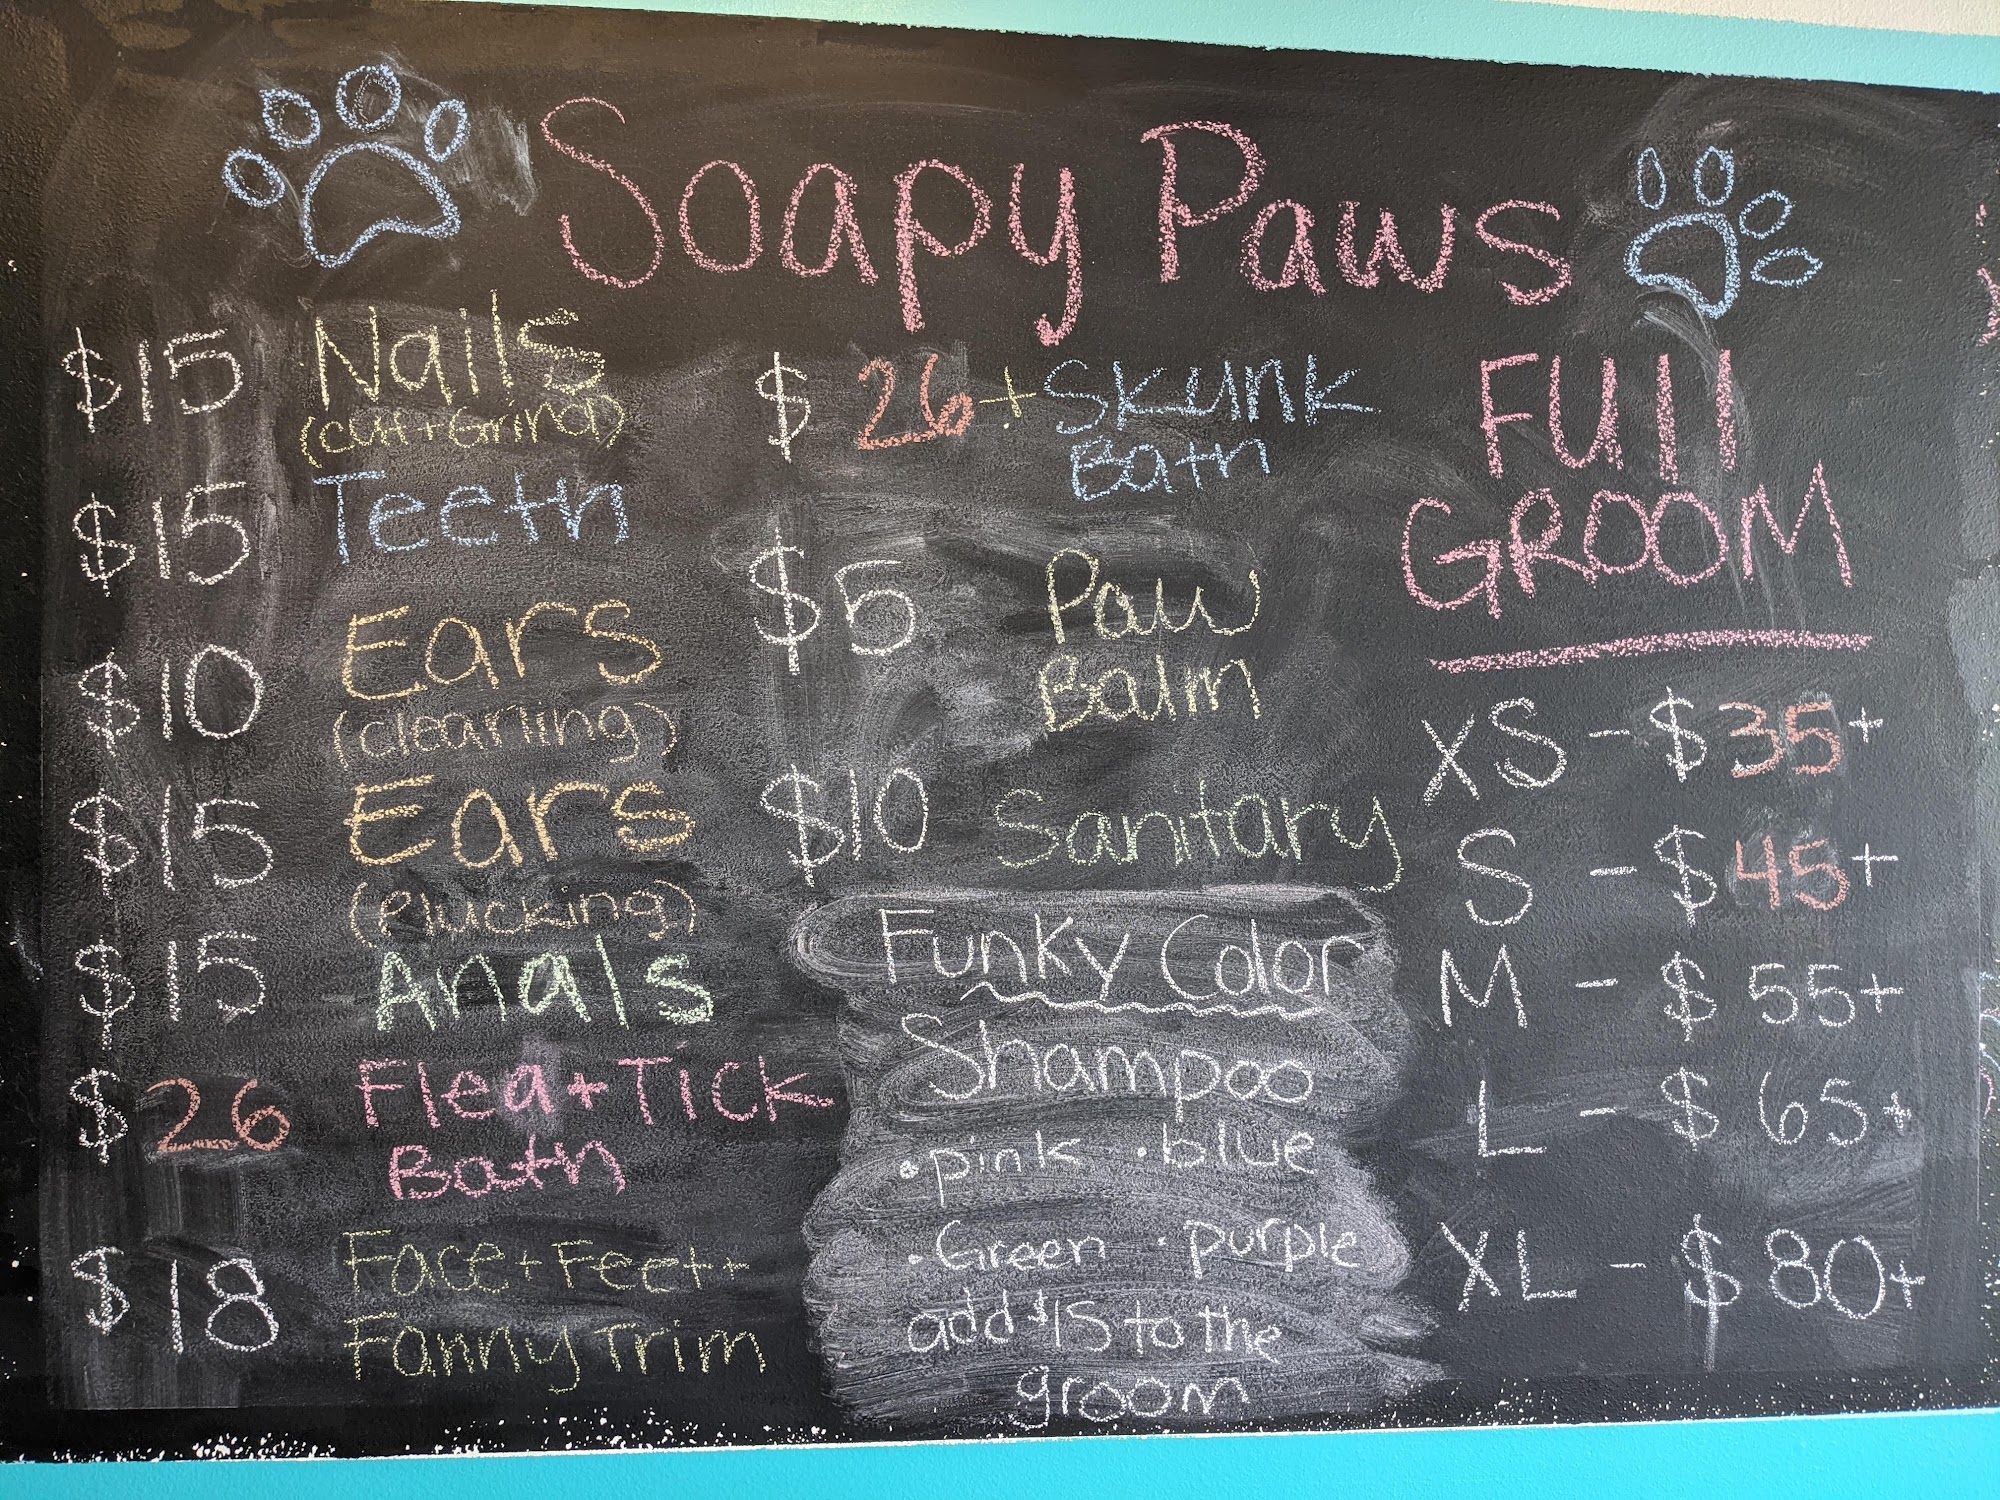 Soapy Paws
$15 Nails
(cut+Grind)
$15 Teeth
$10 Ears
(cleaning)
$15 Ears
(plucking)
$15 Anals
$26 Flea+Tick
Bath
$18 Face+Feet+
Fanny Trim
$26+ Skunk
Bath
$5 Paw
Balm
$10 Sanitary
Funky Color
Shampoo
• pink • blue
• Green • purple
add $15 to the
groom
Full
GROOM
XS - $35+
S - $45+
M - $55+
L - $65+
XL - $80+